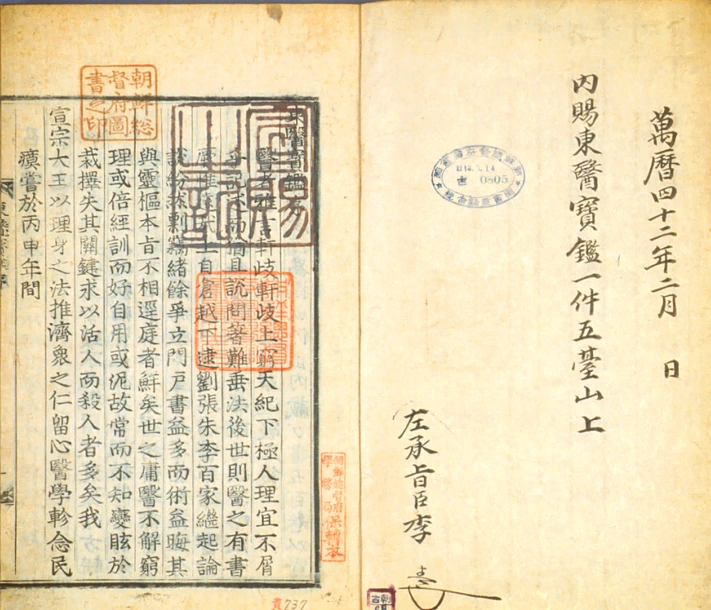 萬曆四十二年二月 日
內賜東醫寶鑑一件五臺山上
左承旨臣李
東醫寶鑑序
醫者雅言軒岐軒岐上窮天紀下極人理宜不屑
乎記述而猶且說問著難垂法後世則醫之有書
厥惟遠哉上自倉越下逮劉張朱李百家繼起論
說紛然剽竊緖餘爭立門戶書益多而術益晦其
與靈樞本旨不相逕庭者鮮矣世之庸醫不解窮
理或倍經訓而好自用或泥故常而不知變眩於
裁擇失其關鍵求以活人而殺人者多矣我
宣宗大王以理身之法推濟衆之仁留心醫學軫念民
瘼嘗於丙申年間
宣賜之記
朝鮮総
督府圖
書之印
0805
貴737